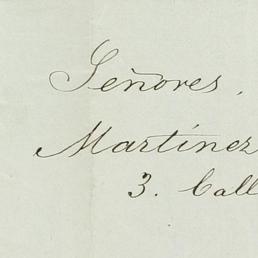 Señores.
Martínez
3. Call